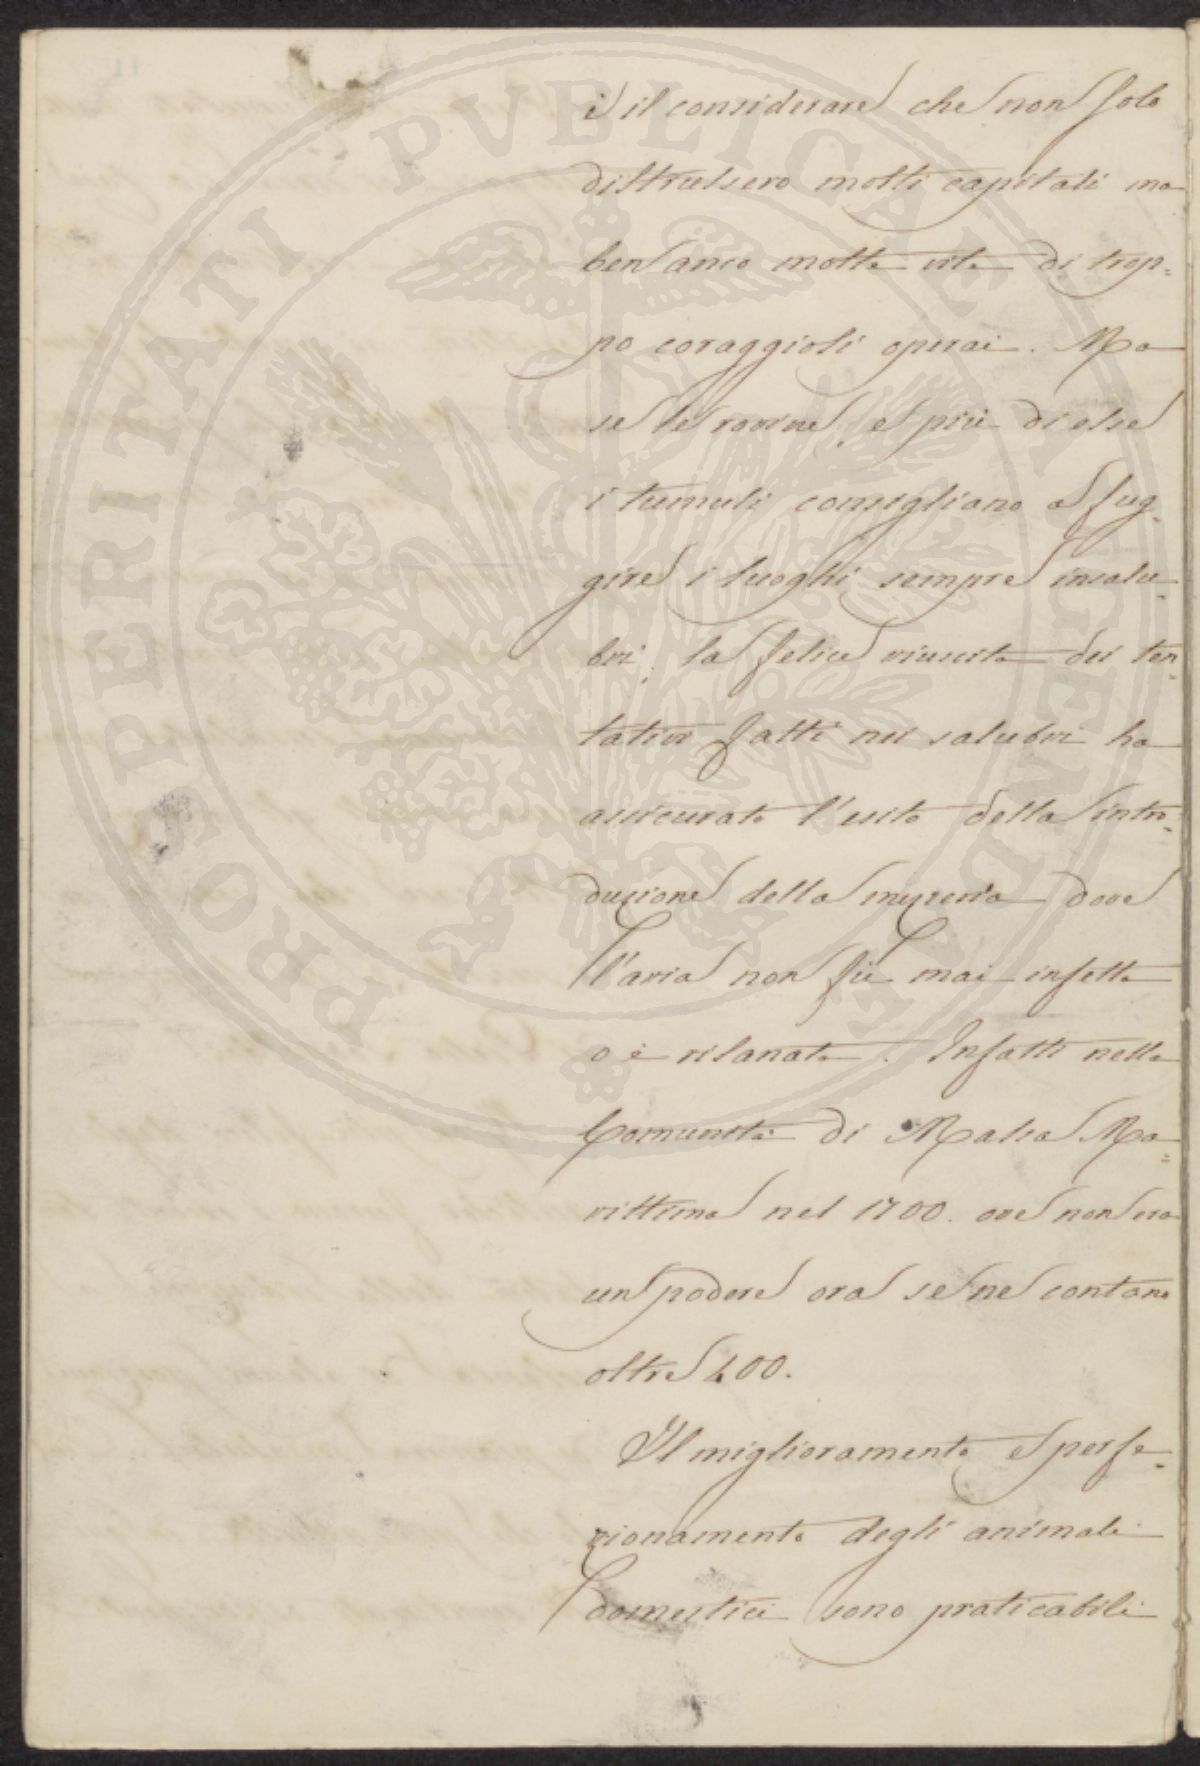 è il considerare che non solo
distrussero molti capitali ma
ben anco molte vite di trop=
po coraggiosi operai. Ma
se le rovine, e più di esse
i tumuli consigliano a fug=
gire i luoghi sempre insalu=
bri; la felice riuscita dei ten=
tativi fatti nei salubri ha
assicurato l'esito della intro=
duzione della mezzeria dove
l'aria non fù mai infetta
o è risanata. Infatti nella
Comunità di Massa Ma=
rittima nel 1700. ove non era
un podere ora se ne contano
oltre 400.
Il miglioramento e perfe=
zionamento degli animali
domestici sono praticabili
PROSPERITATI PVBLICAE AVGENDAE